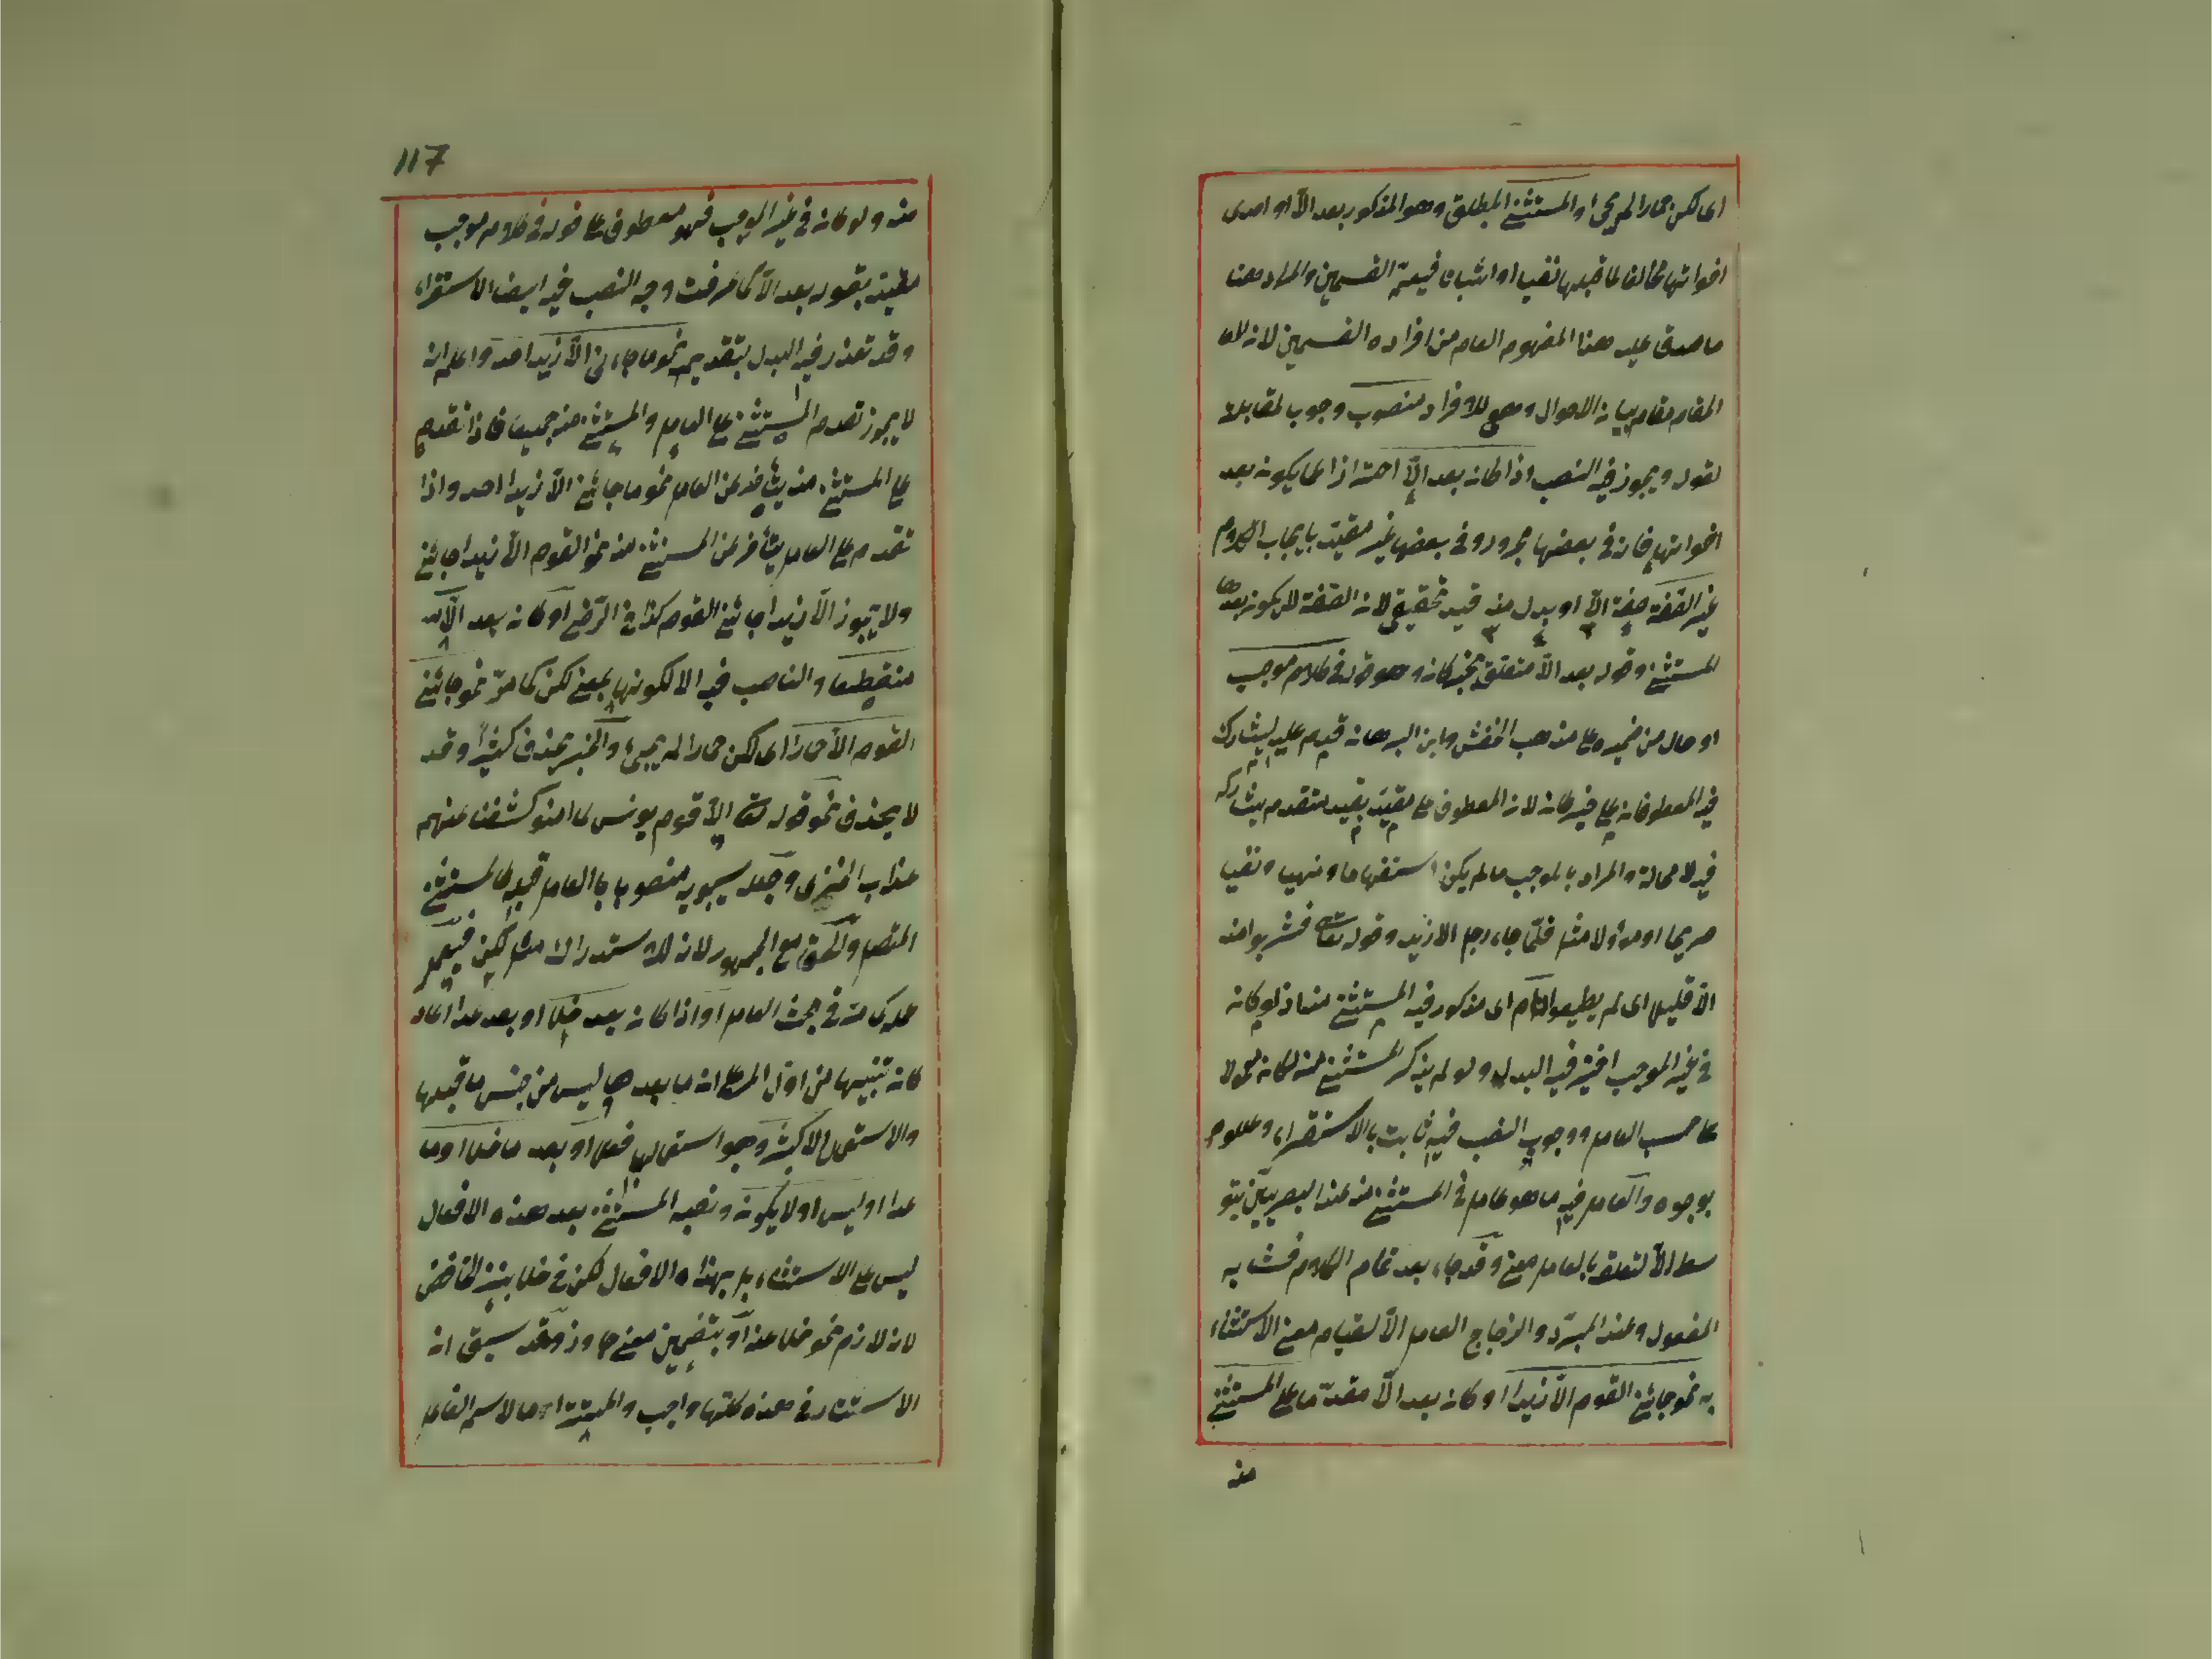 اى لكن حمارا لم يجئ او المستثنى المطلق وهو المذكور بعد الاّ او احدى
اخواتها مخالفا لما قبلها نفيا او اثباتا فيعمّ القسمين والمراد هنا
ما صدق عليه هذا المفهوم العام من افراده القسمين لانه
المقام مقام بيان الاحوال وهى للافراد منصوب وجوبا لمقابلة
قوله ويجوز فيه النصب اذا كان بعد الاّ احتراز عما يكون بعد
اخواتها فانه فى بعضها مجرور وفى بعضها غير مقيّد بايجاب الكلام
غير الصفة صفة الاّ او بدل منه قيد تحقيقى لانه الصفة لا يكون بعدها
المستثنى وقوله بعد الاّ متعلق بخبر كان وهو قوله فى كلام موجب
او حال من ضميره على مذهب اخفش وابن البرهان قدم عليه ليشارك
فيه المعطوفان على خبر كان لان المعطوف على مقيّد بقيد متقدم يشاركه
فيه لا محالة والمراد بالموجب ما لم يكن استفهاما ونهيا ونفيا
صريحا او مؤولا مثل قلّما جاء رجل الا زيد وقوله تعالى فشربوا منه
الاّ قليل اى لم يطيعوا تام اى مذكور فيه المستثنى منه اذ لو كان
فى غير الموجب اختير فيه البدل ولو لم يذكر المستثنى منه لكان معمولا
على حسب العامل ووجوب النصب فيه ثابت بالاستقراء ومعلوم
بوجوه والعامل فيه ما هو عامل فى المستثنى منه عند البصريين بتو
سط الاّ لتعلقه بالعامل معنى وقد جاء بعد تمام الكلام فشابه
المفعول وعند المبرّد والزجاج العامل الاّ لقيام معنى الاستثناء
به نحو جائنى القوم الاّ زيدا او كان بعد الاّ مقدّما على المستثنى
منه
117
منه ولو كان فى غير الموجب فهو معطوف على قوله فى كلام موجب
مقيّد بقوله بعد الاّ كما عرفت وجه النصب فيه ايضا الاستقراء
وقد تعذر فيه البدل بتقديمه نحو ما جاءنى الاّ زيدا احد واعلم انه
لا يجوز تقدم المستثنى على العامل والمستثنى منه جميعا فاذا تقدم
على المستثنى منه يتأخر عن العامل نحو ما جائنى الاّ زيدا احد واذا
تقدم على العامل يتأخر عن المستثنى منه نحو القوم الاّ زيدا جائنى
ولا يجوز الاّ زيدا جائنى القوم كذا فى الرّضى او كان بعد الاّ
منقطعا والناصب فيه الا لكونها بمعنى لكن كما مرّ نحو جائنى
القوم الاّ حمارا اى لكن حمارا لم يجئ والخبر يحذف كثيرا وقد
لا يحذف نحو قوله تعالى الاّ قوم يونس لما امنوا كشفنا عنهم
عذاب الخزى وجعله سيبويه منصوبا بالعامل قبله كالمستثنى
المتصل والحق مع الجمهور لانه للاستدراك مثل لكن فيعمل
عمله كما مرّ فى بحث العامل او اذا كان بعد خلا او بعد عدا اعاد
كان تنبيها من اوّل الامر على انه ما بعدها ليس من جنس ما قبلها
والاستعمال الاكثر وهو استعمالها فعلا او بعد ما خلا او ما
عدا او ليس او لا يكون ونصب المستثنى بعد هذه الافعال
ليس على الاستثناء بل بهذه الافعال لكن فى خلا بنزع الخافض
لانه لازم نحو خلا عنه او بتضمين معنى جاوز وقد سبق انه
الاستتار فى هذه كلّها واجب والمستتر اما لاسم الفاعل